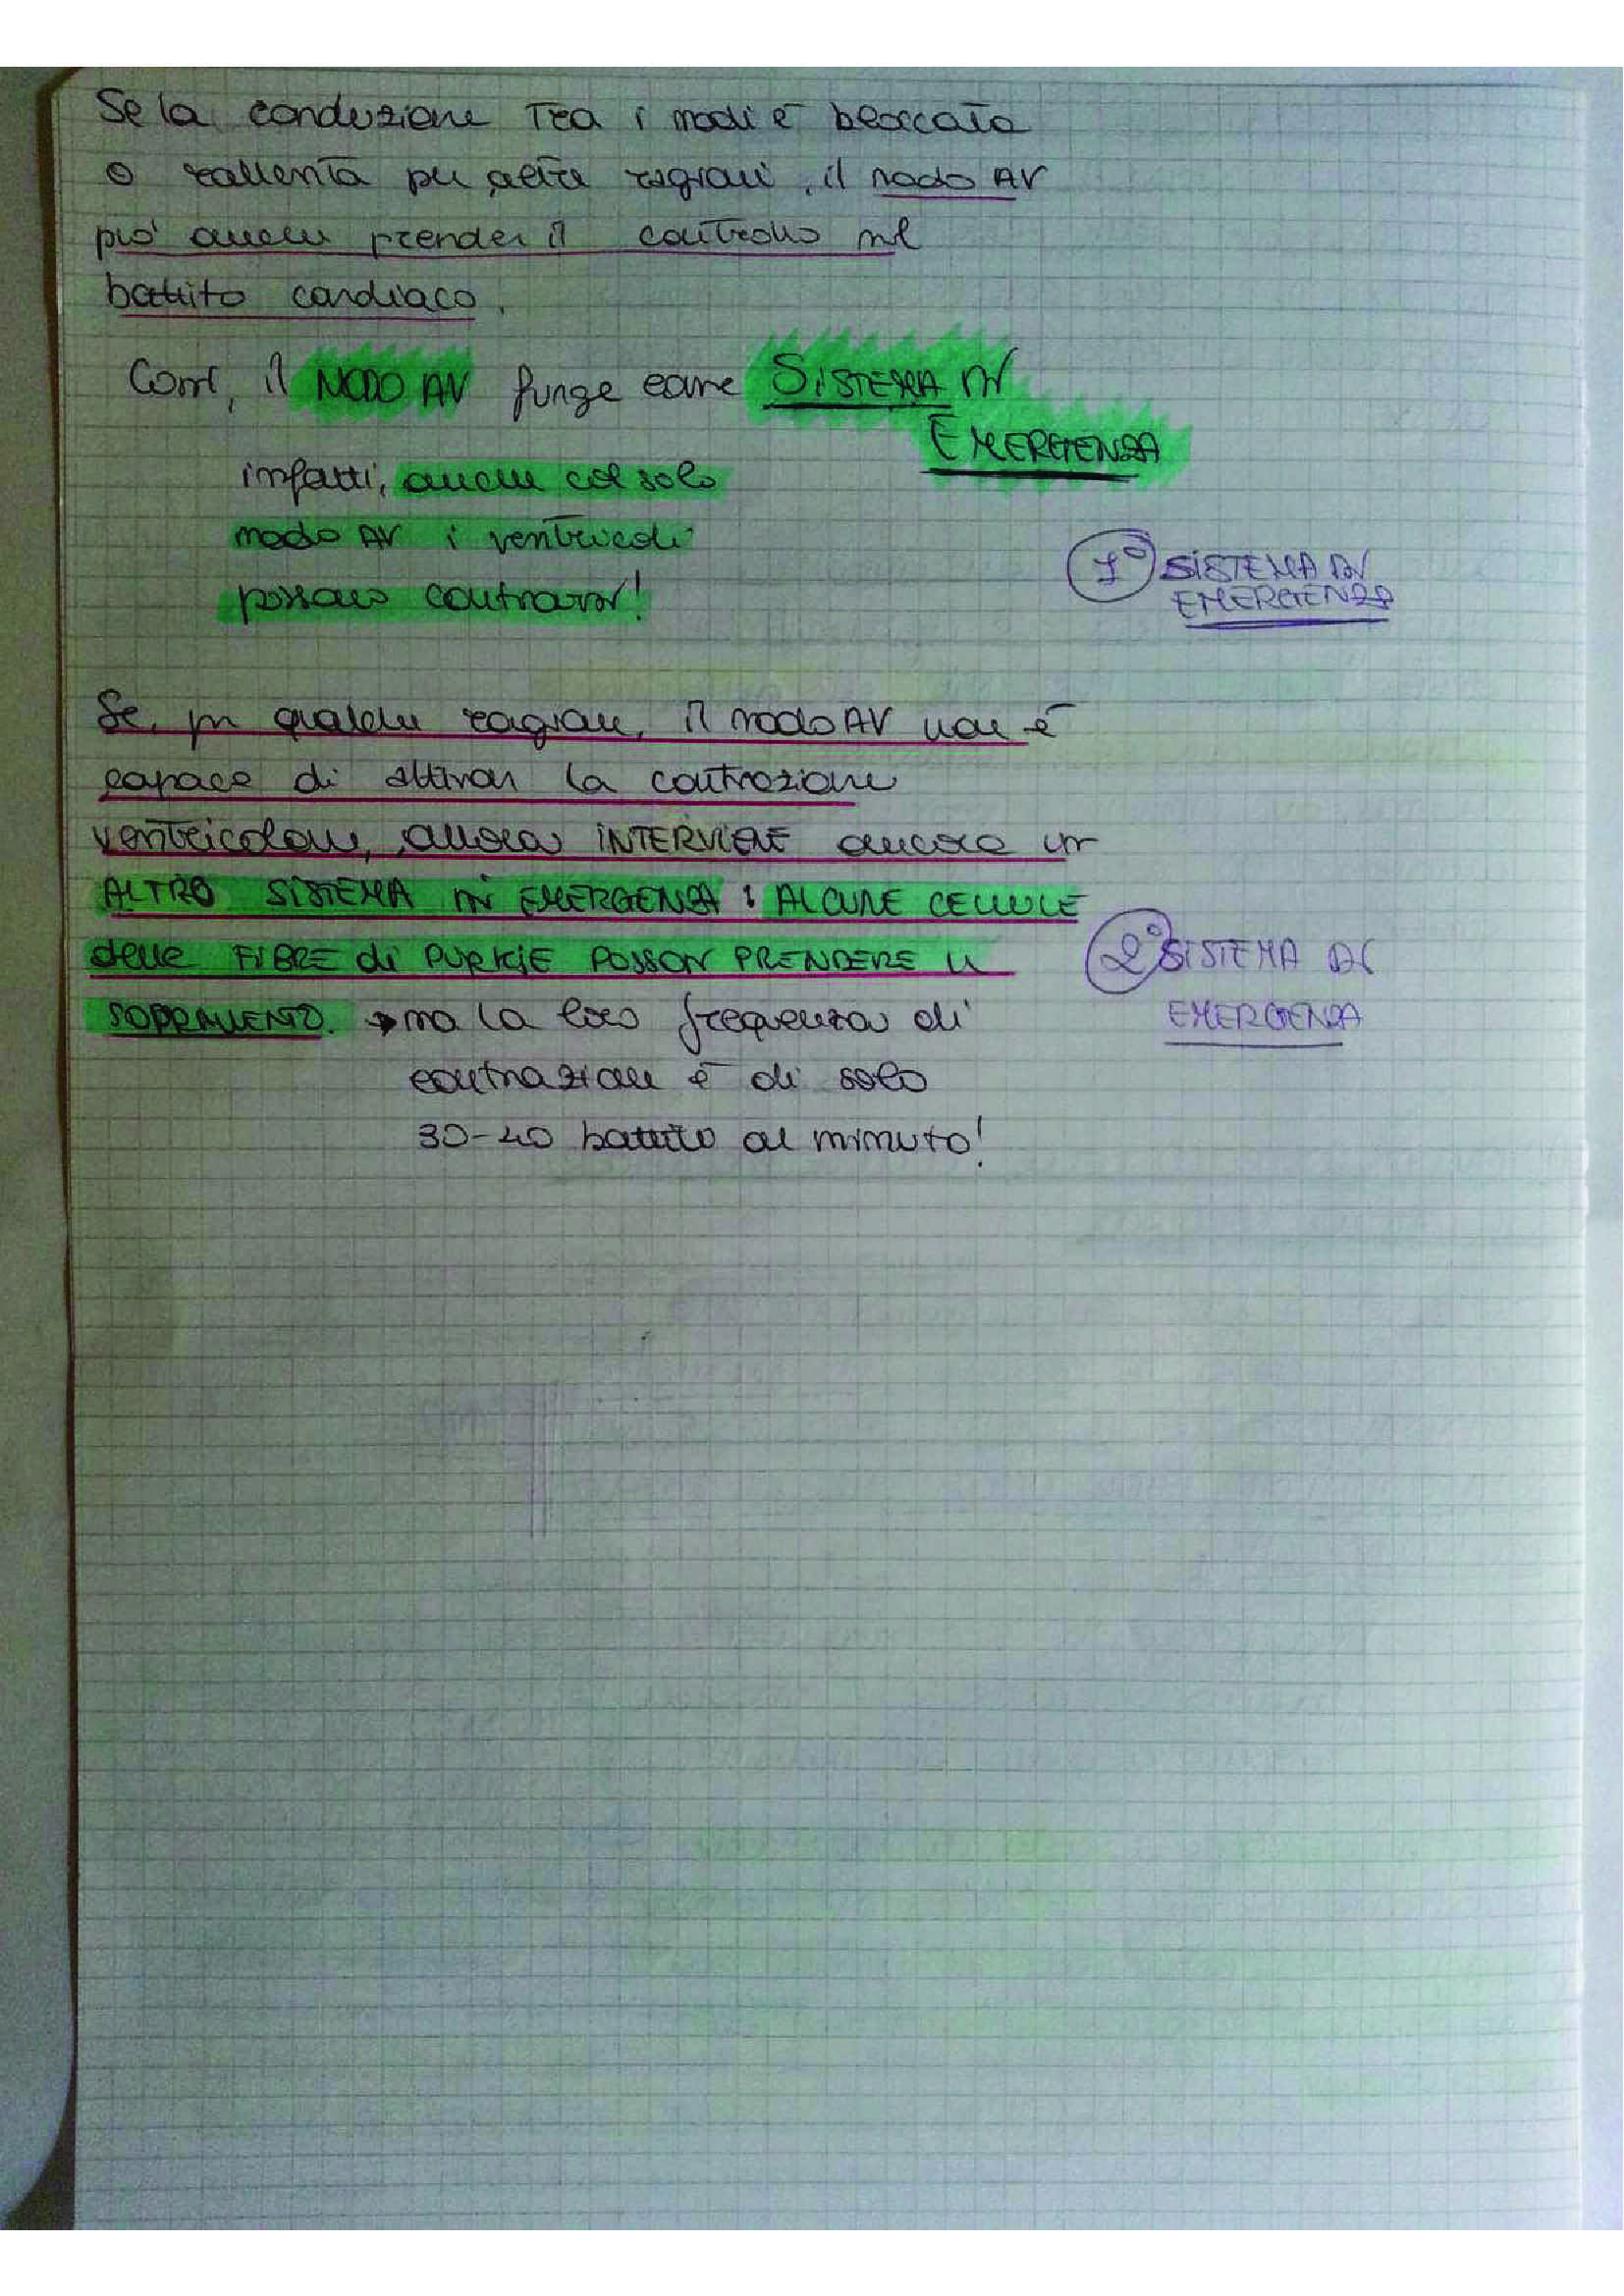 Se la conduzione tra i nodi è bloccata
o rallenta per altre ragioni, il nodo AV
può anche prender il controllo nel
battito cardiaco.
Così, il NODO AV funge come SISTEMA DI
EMERGENZA
infatti, anche col solo
nodo AV i ventricoli
possono contrarsi!
1° SISTEMA DI
EMERGENZA
Se, per qualche ragione, il nodo AV non è
capace di attivar la contrazione
ventricolare, allora INTERVIENE ancora un
ALTRO SISTEMA DI EMERGENZA: ALCUNE CELLULE
delle FIBRE di PURKIE POSSON PRENDERE IL
SOPRAVVENTO. → ma la loro frequenza di
contrazione è di solo
30-40 battito al minuto!
2° SISTEMA DI
EMERGENZA